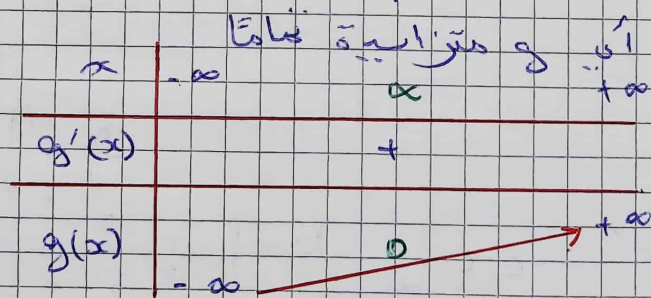 أي g متزايدة تماما
x -∞ α +∞
g'(x) +
g(x) -∞ 0 +∞